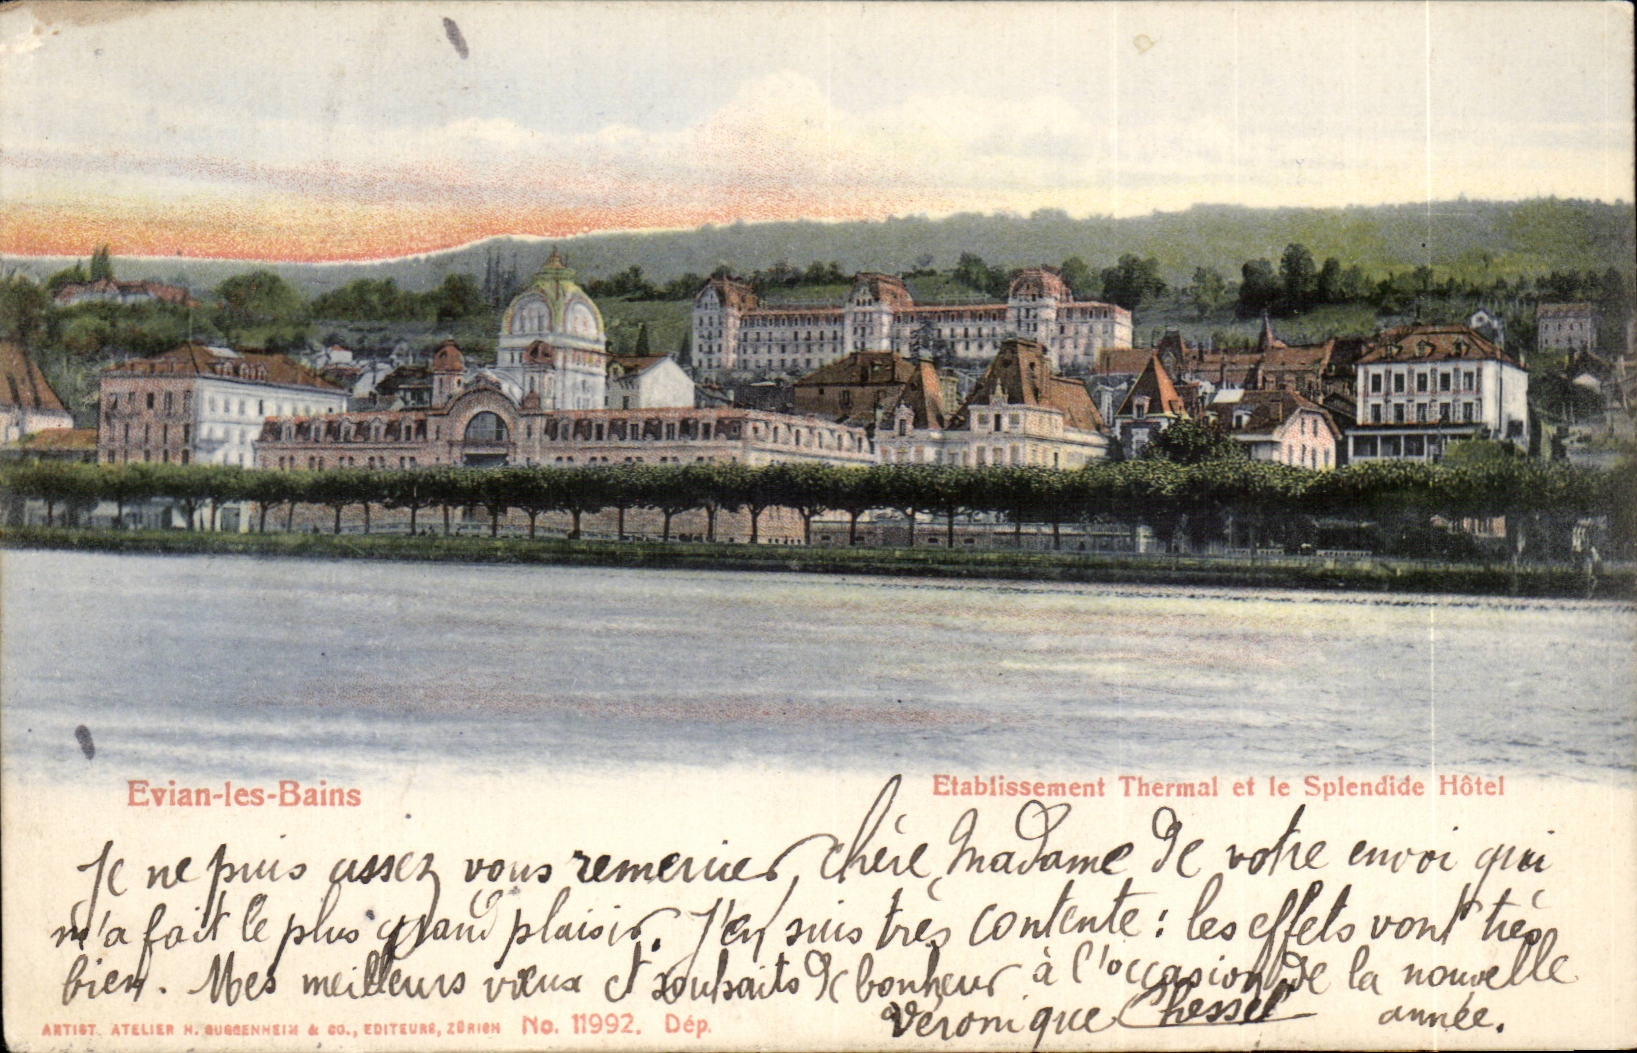 Evian-les-Bains
Etablissement Thermal et le Splendide Hôtel
Je ne puis assez vous remercier, chère Madame de votre envoi qui
m'a fait le plus grand plaisir. J'en suis très contente : les effets vont très
bien. Mes meilleurs vœux et souhaits de bonheur à l'occasion de la nouvelle
année.
Véronique Chessel
ARTIST. ATELIER H. GUGGENHEIM & CO., EDITEURS, ZÜRICH No. 11992. Dép.